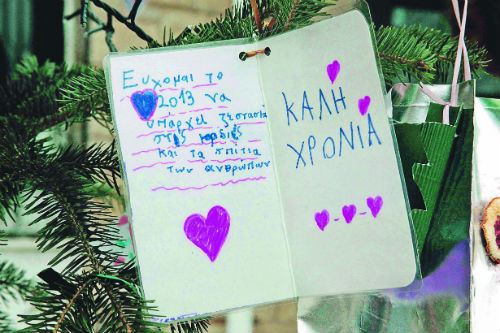 Ευχομαι το
2013 να
υπαρχει ζεστασια
στις καρδιές
και τα σπίτια
των ανθρώπων
ΚΑΛΗ
ΧΡΟΝΙΑ